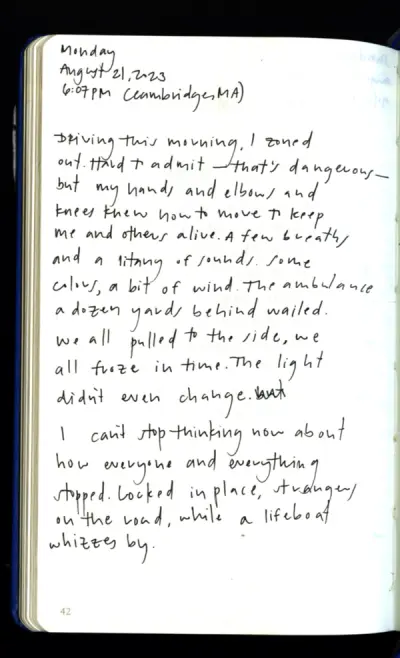 Monday
August 21, 2023
6:07 PM (Cambridge, MA)
Driving this morning, I zoned
out. Hard to admit — that's dangerous —
but my hands and elbows and
knees knew how to move to keep
me and others alive. A few breaths
and a litany of sounds. Some
colors, a bit of wind. The ambulance
a dozen yards behind wailed.
We all pulled to the side, we
all froze in time. The light
didn't even change.
I can't stop thinking now about
how everyone and everything
stopped. Locked in place, strangers
on the road, while a lifeboat
whizzes by.
42